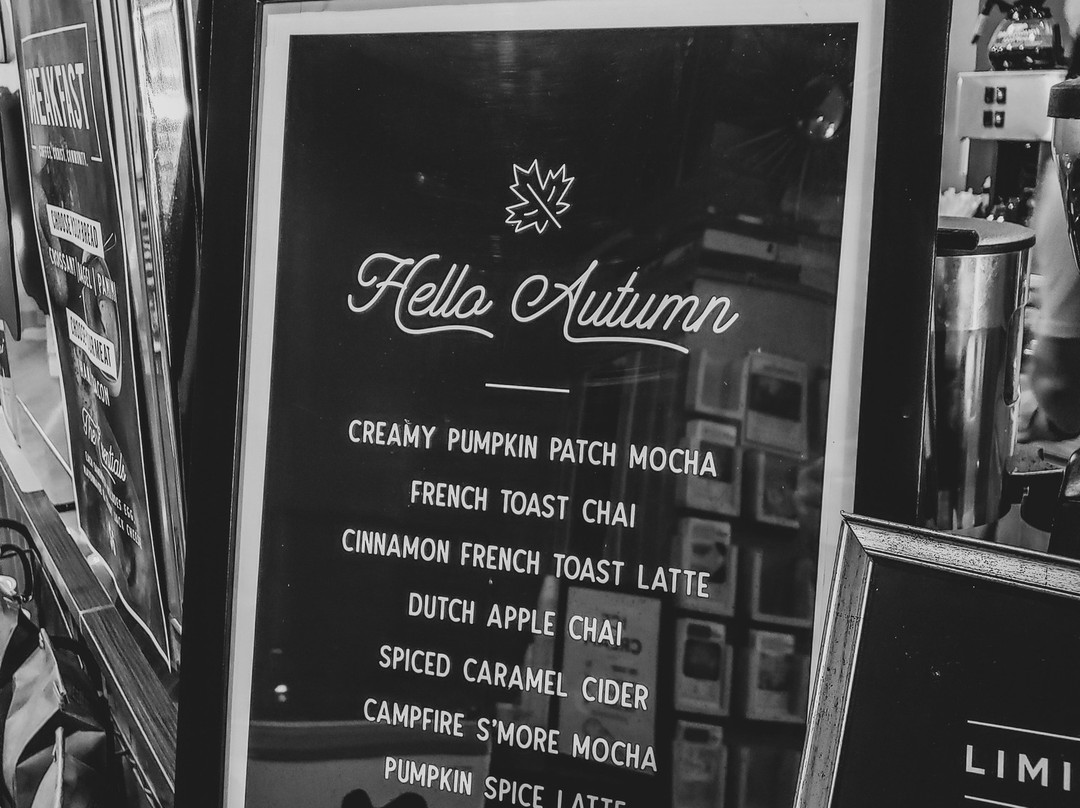 BREAKFAST
CHOOSE YOUR BREAD
CROISSANT | BAGEL | PANINI
Hello Autumn
CREAMY PUMPKIN PATCH MOCHA
FRENCH TOAST CHAI
CINNAMON FRENCH TOAST LATTE
DUTCH APPLE CHAI
SPICED CARAMEL CIDER
CAMPFIRE S'MORE MOCHA
PUMPKIN SPICE LATTE
LIMI